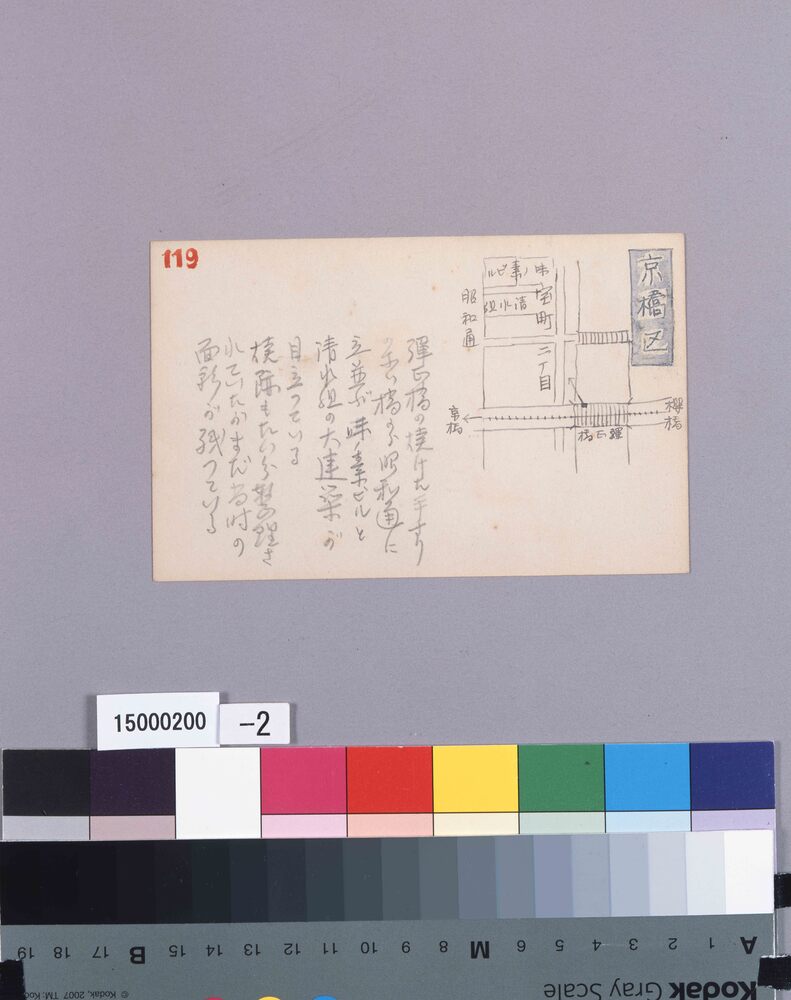 119
京橋区
味ノ素ビル
清水組
宝町二丁目
昭和通
桜橋
弾正橋
京橋
弾正橋の焼けた手すり
橋から昭和通に
立並ぶ味ノ素ビルと
清水組の大建築が
目立つている
焼跡もだいぶ整理さ
れていたがまだ当時の
面影が残つている
15000200
-2
Kodak Gray Scale
A 1 2 3 4 5 6 M 8 9 10 11 12 13 14 15 B 17 18 19
© Kodak, 2007 TM: Kodak